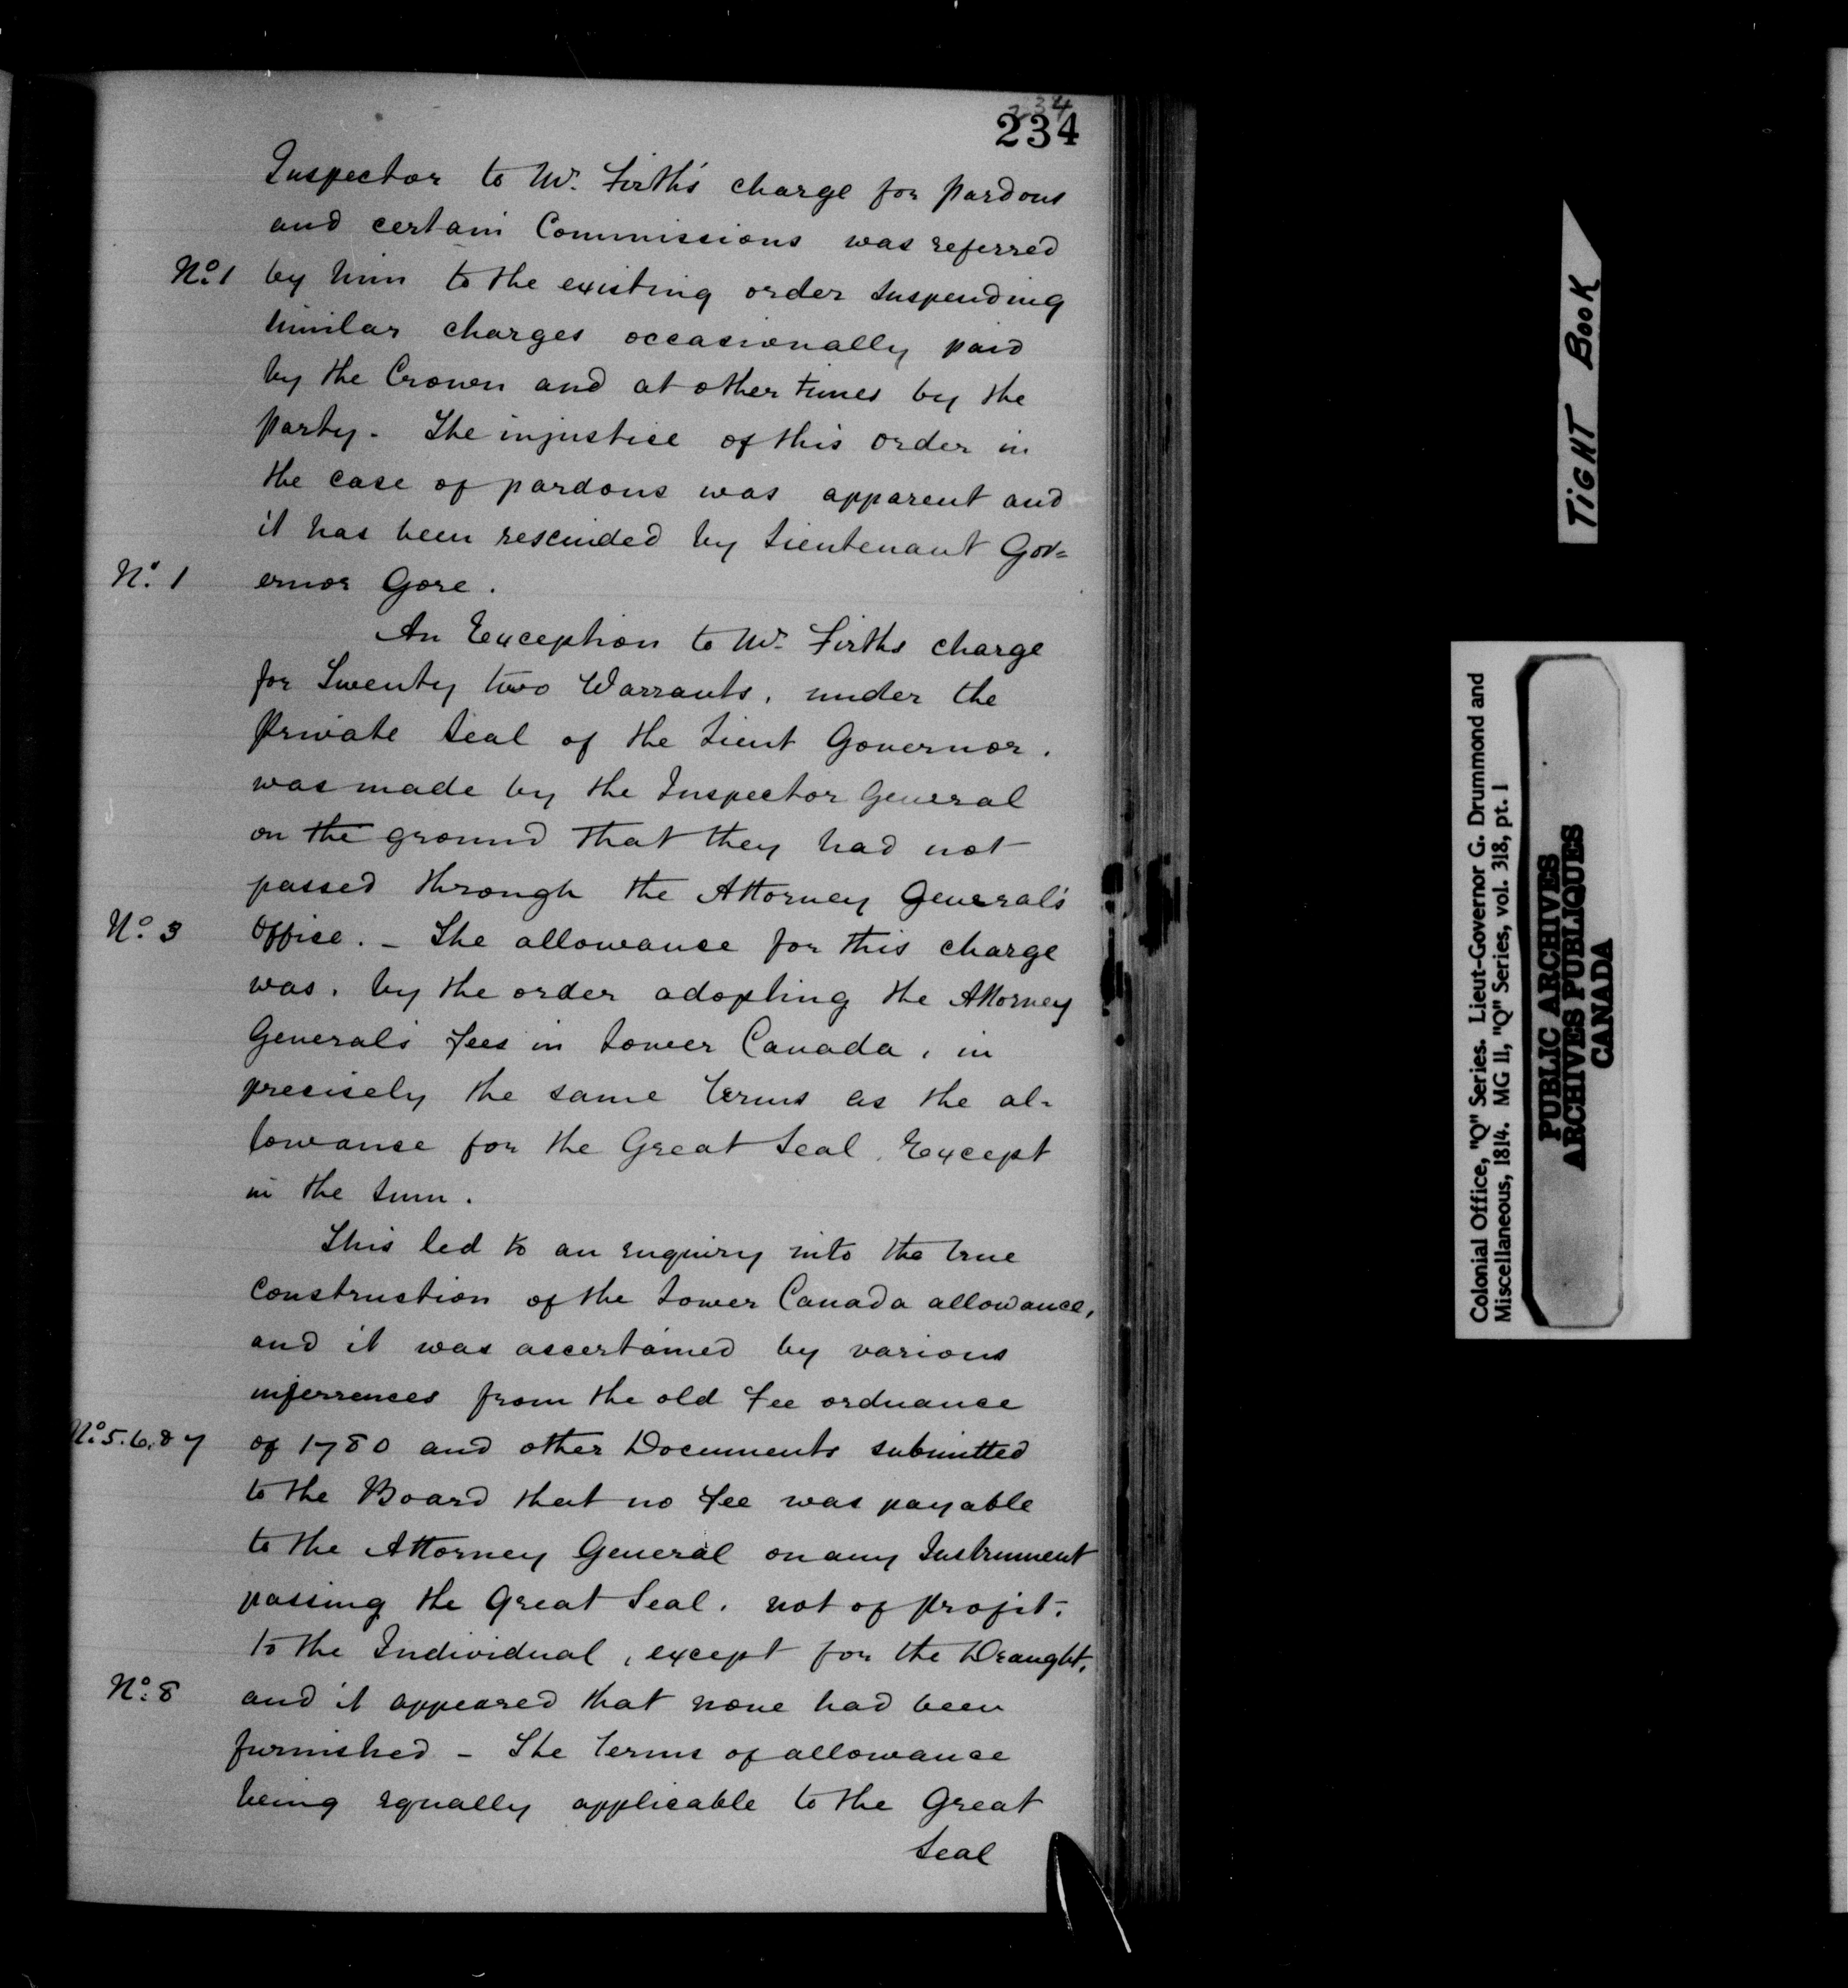 234
234
Inspector to Mr. Firth's charge for pardons
and certain Commissions was referred
No. 1 by him to the existing order suspending
similar charges occasionally paid
by the Crown and at other times by the
party. The injustice of this order in
the case of pardons was apparent and
it has been rescinded by Lieutenant Gov=
No. 1 ernor Gore.
An Exception to Mr. Firths charge
for Twenty two Warrants, under the
Private Seal of the Lieut Governor.
was made by the Inspector General
on the ground that they had not
passed through the Attorney General's
No. 3 Office. - The allowance for this charge
was, by the order adopting the Attorney
General's Fees in Lower Canada, in
precisely the same terms as the al-
lowance for the Great Seal, Except
in the sum.
This led to an enquiry into the true
Construction of the Lower Canada allowance,
and it was ascertained by various
inferrences from the old Fee ordnance
No. 5. 6. & 7 of 1780 and other Documents submitted
to the Board that no Fee was payable
to the Attorney General on any Instrument
passing the Great Seal, not of profit.
to the Individual, except for the Draught,
No. 8 and it appeared that none had been
furnished - The terms of allowance
being equally applicable to the Great
Seal
TIGHT BOOK
Colonial Office, "Q" Series. Lieut-Governor G. Drummond and
Miscellaneous, 1814. MG 11, "Q" Series, vol. 318, pt. 1
PUBLIC ARCHIVES
ARCHIVES PUBLIQUES
CANADA